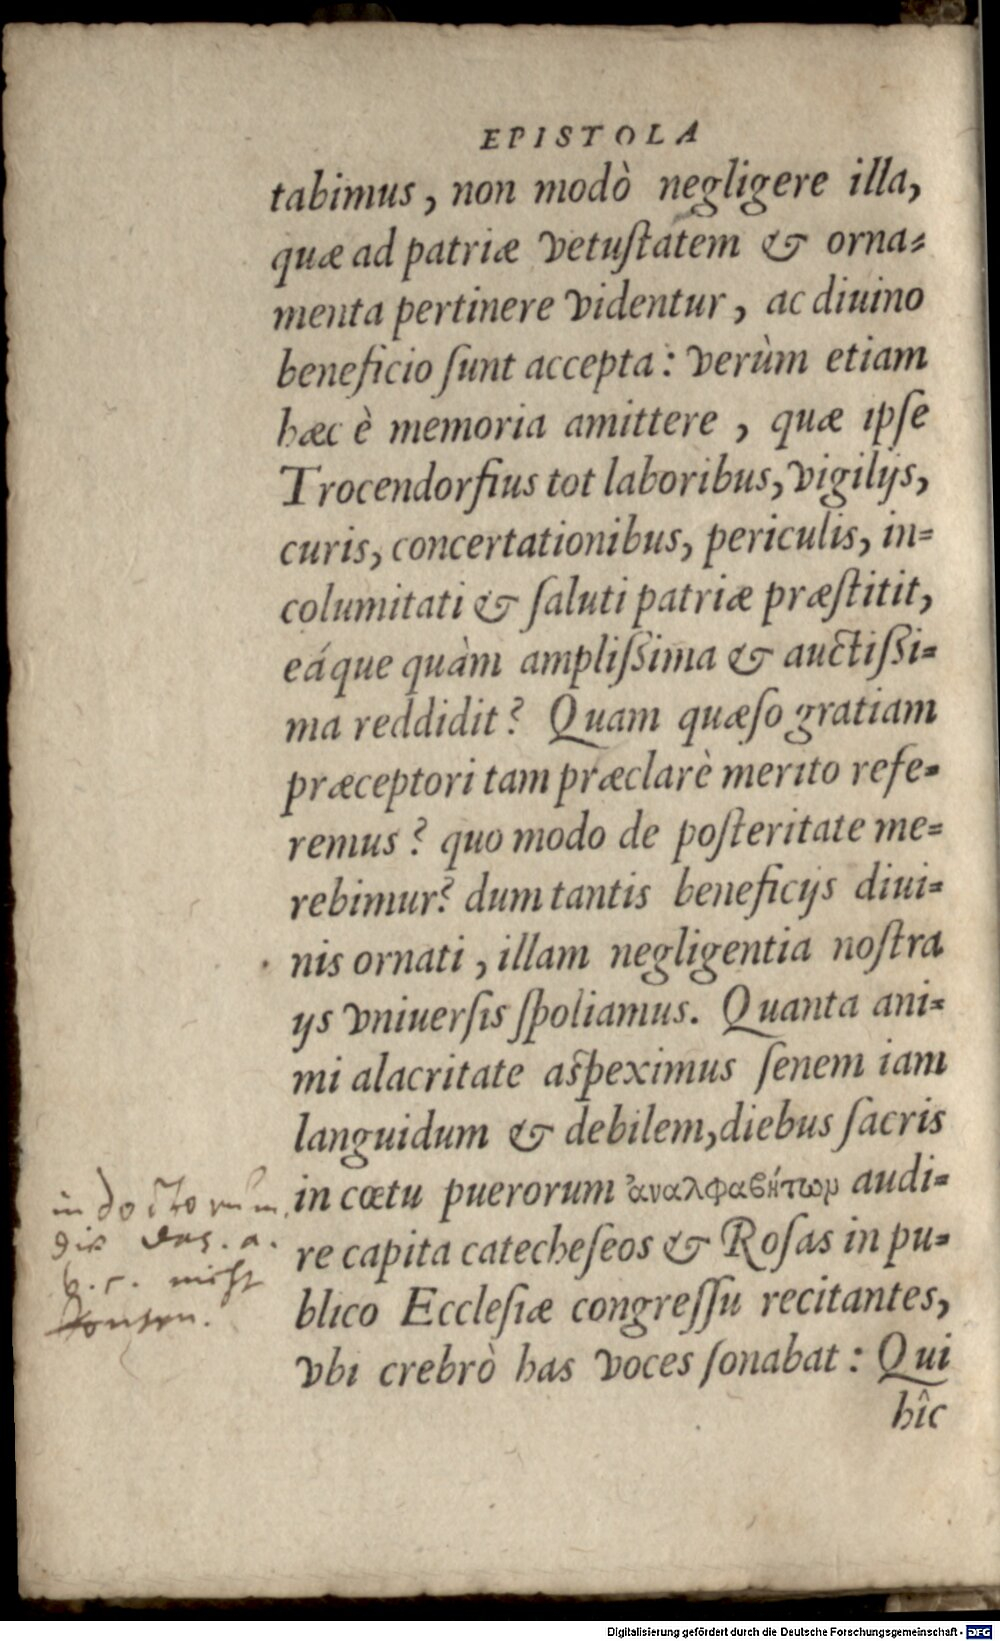 EPISTOLA
tabimus, non modò negligere illa,
quæ ad patriæ vetuſtatem & orna-
menta pertinere videntur, ac diuino
beneficio ſunt accepta: verùm etiam
hæc è memoria amittere, quæ ipſe
Trocendorfius tot laboribus, vigilijs,
curis, concertationibus, periculis, in-
columitati & ſaluti patriæ præſtitit,
eáque quàm ampliſſima & auctiſſi-
ma reddidit? Quam quæſo gratiam
præceptori tam præclarè merito refe-
remus? quo modo de poſteritate me-
rebimur? dum tantis beneficijs diui-
nis ornati, illam negligentia noſtra
ijs vniuerſis ſpoliamus. Quanta ani-
mi alacritate aſpeximus ſenem iam
languidum & debilem, diebus ſacris
in cœtu puerorum ἀναλφαβήτων audi-
re capita catecheſeos & Roſas in pu-
blico Eccleſiæ congreſſu recitantes,
vbi crebrò has voces ſonabat: Qui
hîc
indoctorum.
die das. a.
b. c. nicht
Digitalisierung gefördert durch die Deutsche Forschungsgemeinschaft - DFG